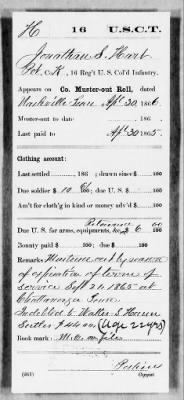 H 16 U.S.C.T.
Jonathan S. Hart
Pvt., Co. K, 16 Reg't U.S. Col'd Infantry.
Appears on Co. Muster-out Roll, dated
Nashville Tenn Apl 30, 1866.
Muster-out to date , 186 .
Last paid to Apl 30, 1865.
Clothing account:
Last settled , 186 ; drawn since $ 100
Due soldier $ 10 100; due U.S. $ 100
Am't for cloth'g in kind or money adv'd $ 100
Due U.S. for arms, equipments, &c., $ 6 00 100
Bounty paid $ 100; due $ 100
Remarks: Mustered out by reason
of expiration of term of
service Sept 21, 1865 at
Chattanooga Tenn
Indebted to Walter S.
Sutler $44.00. (Age 22 yrs)
Book mark:
Perkins
(861) Copyist.